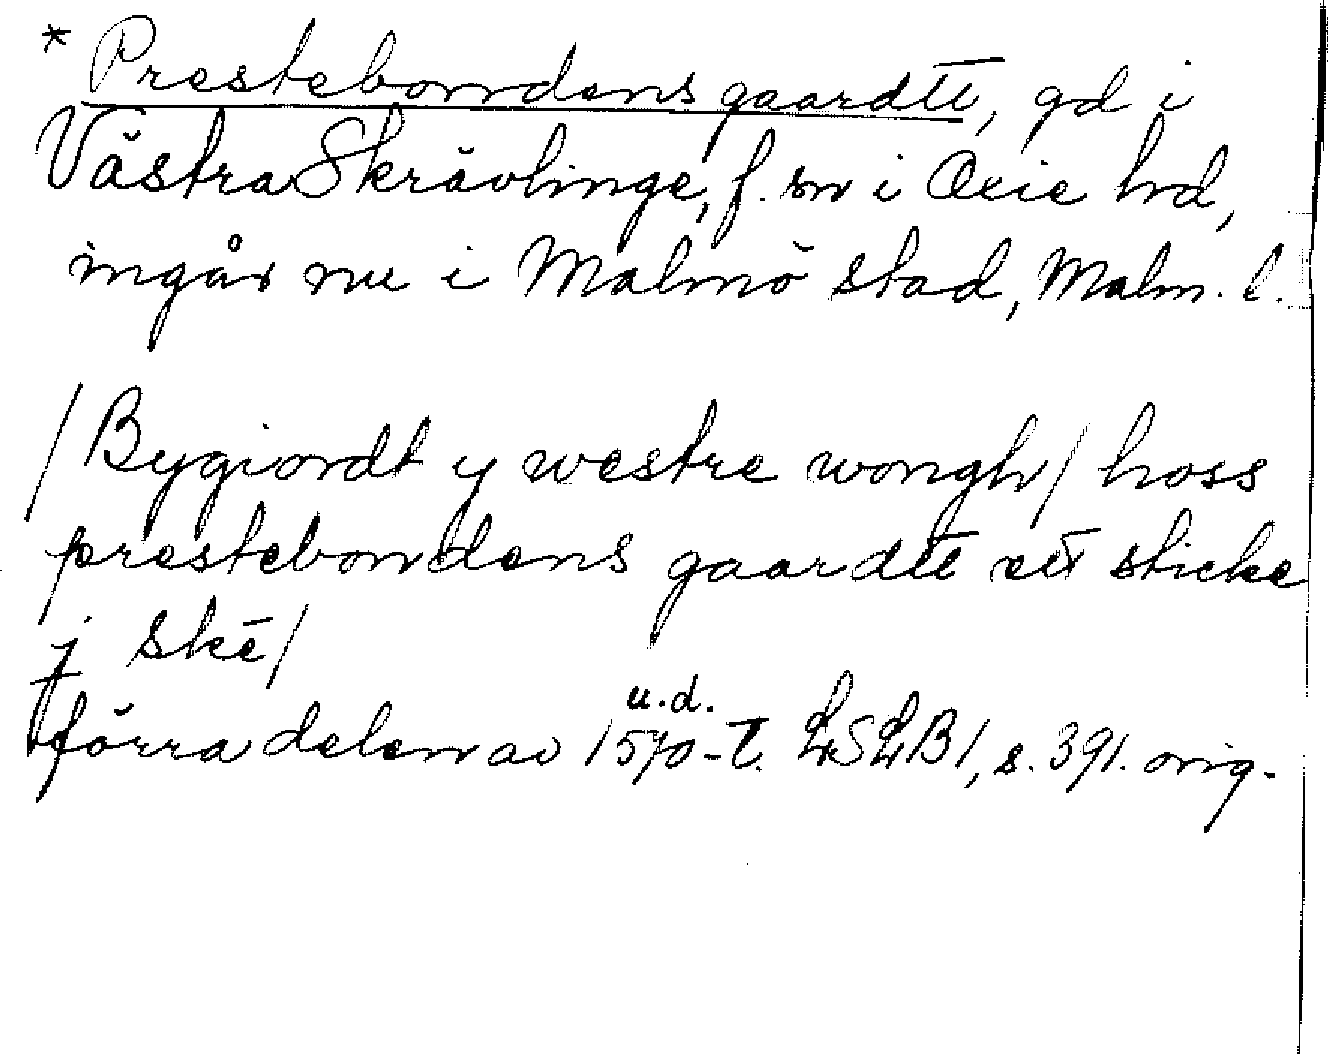 * Prestebondens gaardtt, gd i
Västra Skrävlinge, f. sn i Oxie hd,
ingår nu i Malmö stad, Malm. l.
/Bygiordt y westre wongh/ hoss
prestebondens gaardtt ett sticke
j skē/
förra delen av 1570-t. u.d. LSLB1, s. 391. orig.